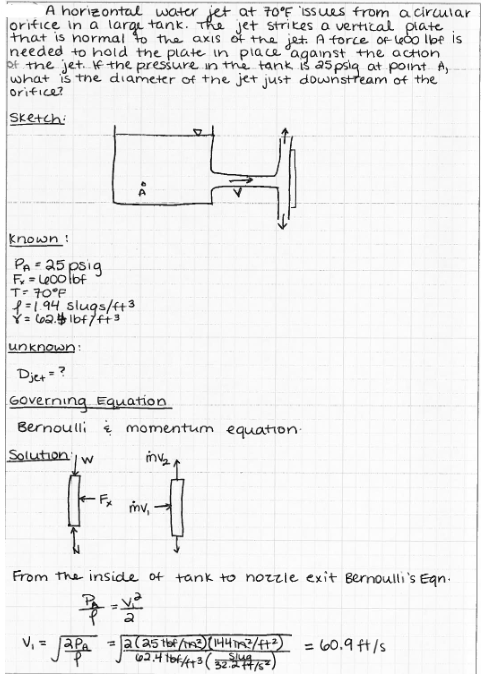 A horizontal water jet at 70°F issues from a circular
orifice in a large tank. The jet strikes a vertical plate
that is normal to the axis of the jet. A force of 600 lbf is
needed to hold the plate in place against the action
of the jet. If the pressure in the tank is 25 psig at point A,
what is the diameter of the jet just downstream of the
orifice?
Sketch:
A
V
Known:
P_A = 25 psig
F_x = 600 lbf
T = 70°F
ρ = 1.94 slugs/ft³
γ = 62.4 lbf/ft³
unknown:
D_jet = ?
Governing Equation
Bernoulli & momentum equation.
Solution:
W
ṁv₂
F_x
ṁv₁
N
From the inside of tank to nozzle exit Bernoulli's Eqn.
P_A/ρ = V₁²/2
V₁ = √(2P_A/ρ) = √(2(25 lbf/in²)(144 in²/ft²)/(62.4 lbf/ft³ (slug/32.2 ft/s²))) = 60.9 ft/s